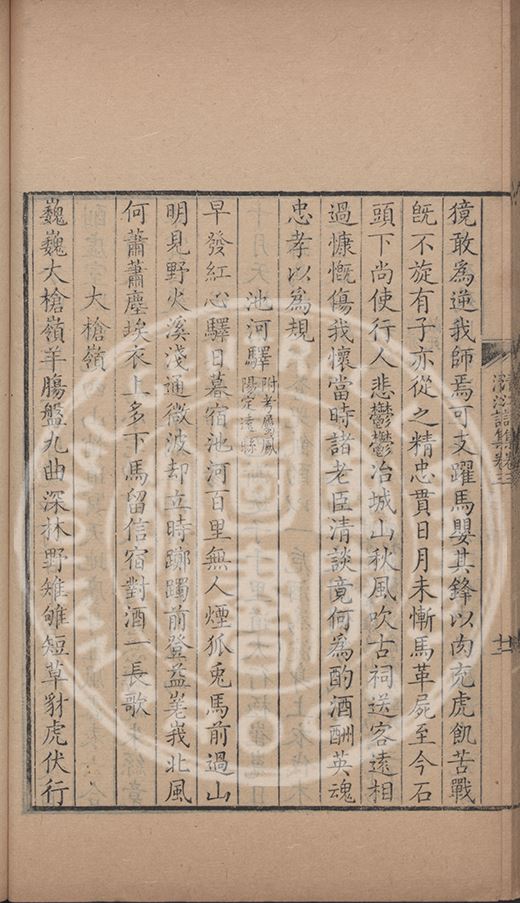 獍敢為逆我師焉可支躍馬嬰其鋒以肉充虎飢苦戰
旣不旋有子亦從之精忠貫日月未慚馬革屍至今石
頭下尚使行人悲鬱鬱冶城山秋風吹古祠送客遠相
過慷慨傷我懷當時諸老臣清談竟何為酌酒酬英魂
忠孝以為規
池河驛附考屬鳳陽定遠縣
早發紅心驛日暮宿池河百里無人煙狐兎馬前過山
明見野火溪淺通微波却立時躑躅前登益峩北風
何蕭蕭塵埃衣上多下馬留信宿對酒一長歌
大槍嶺
巍巍大槍嶺羊腸盤九曲深林野雉雊短草豺虎伏行
集卷三
十一